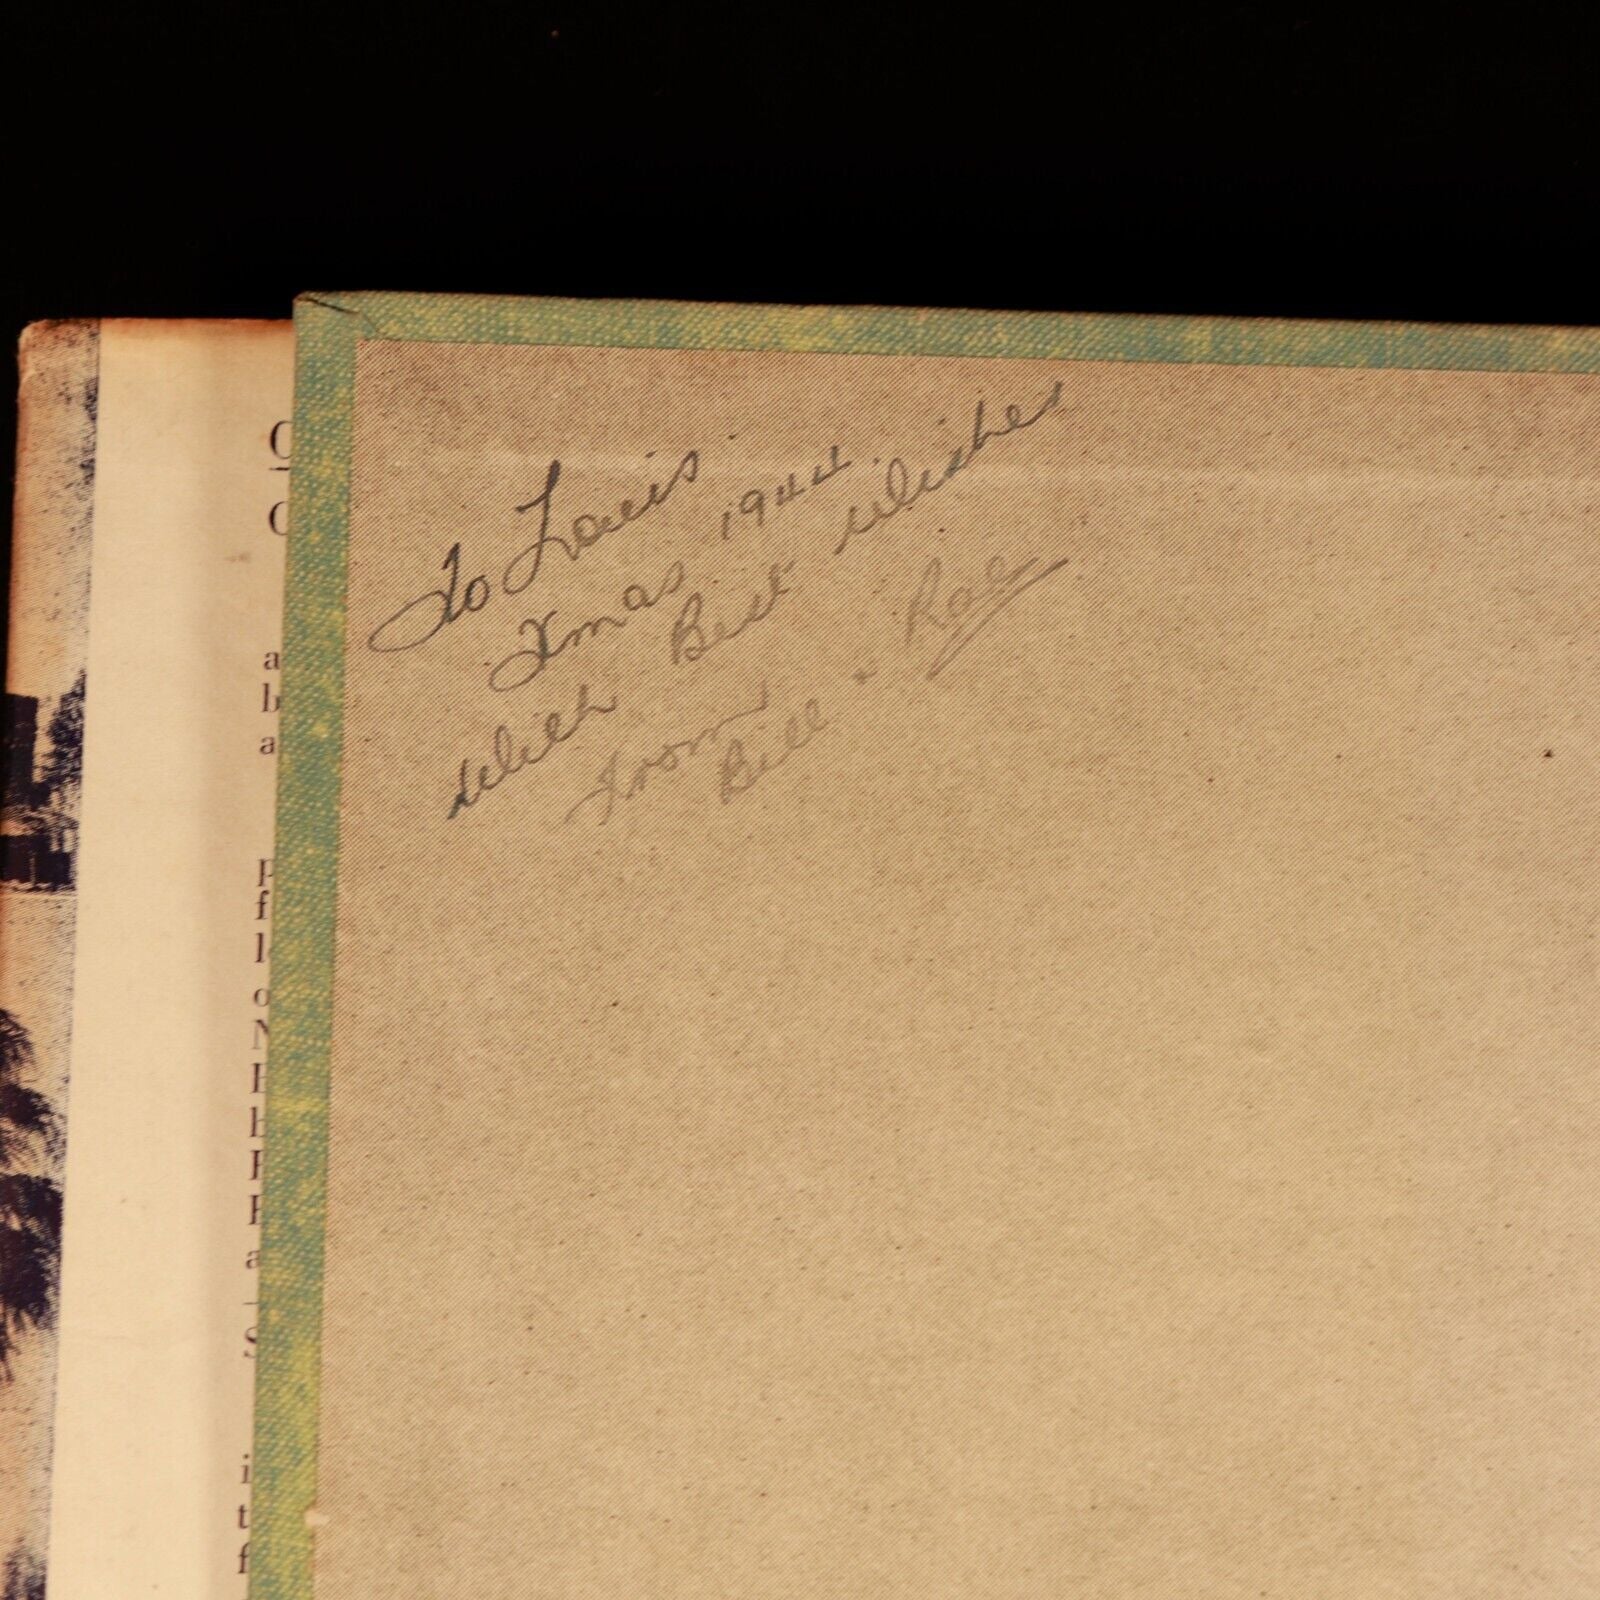 To Louis
Xmas 1944.
With Best Wishes
From
Bill + Rae